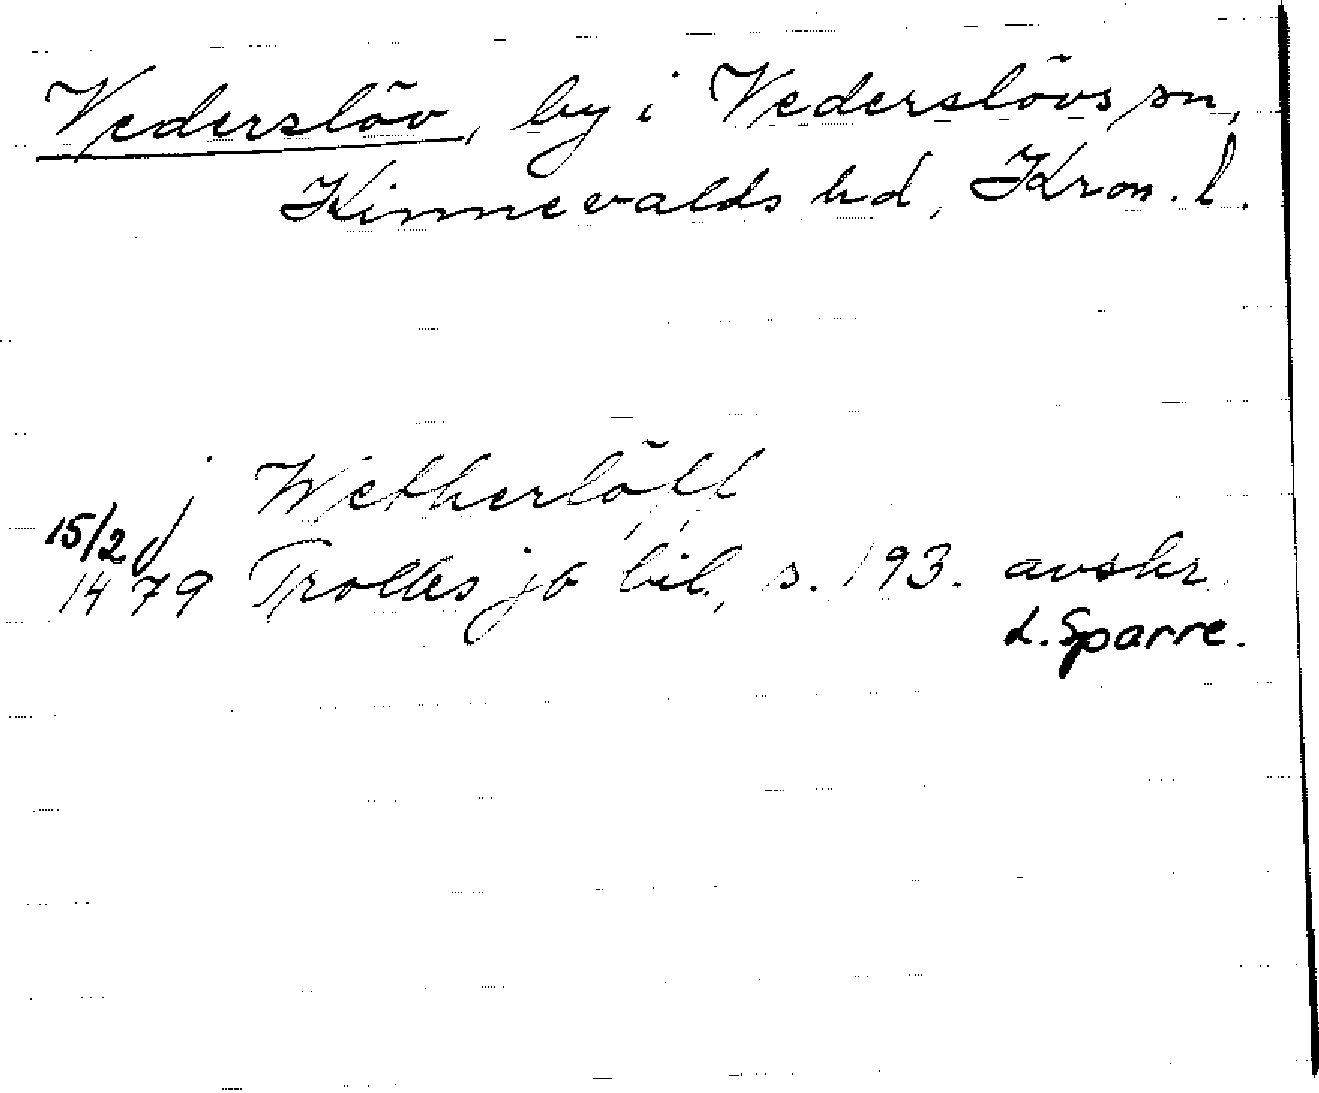 Vederslöv, by i Vederslövs sn,
Kinnevalds hd, Kron. l.
j Wetherlöff
15/2
1479 Trolles jb bil, s. 193. avskr.
L. Sparre.